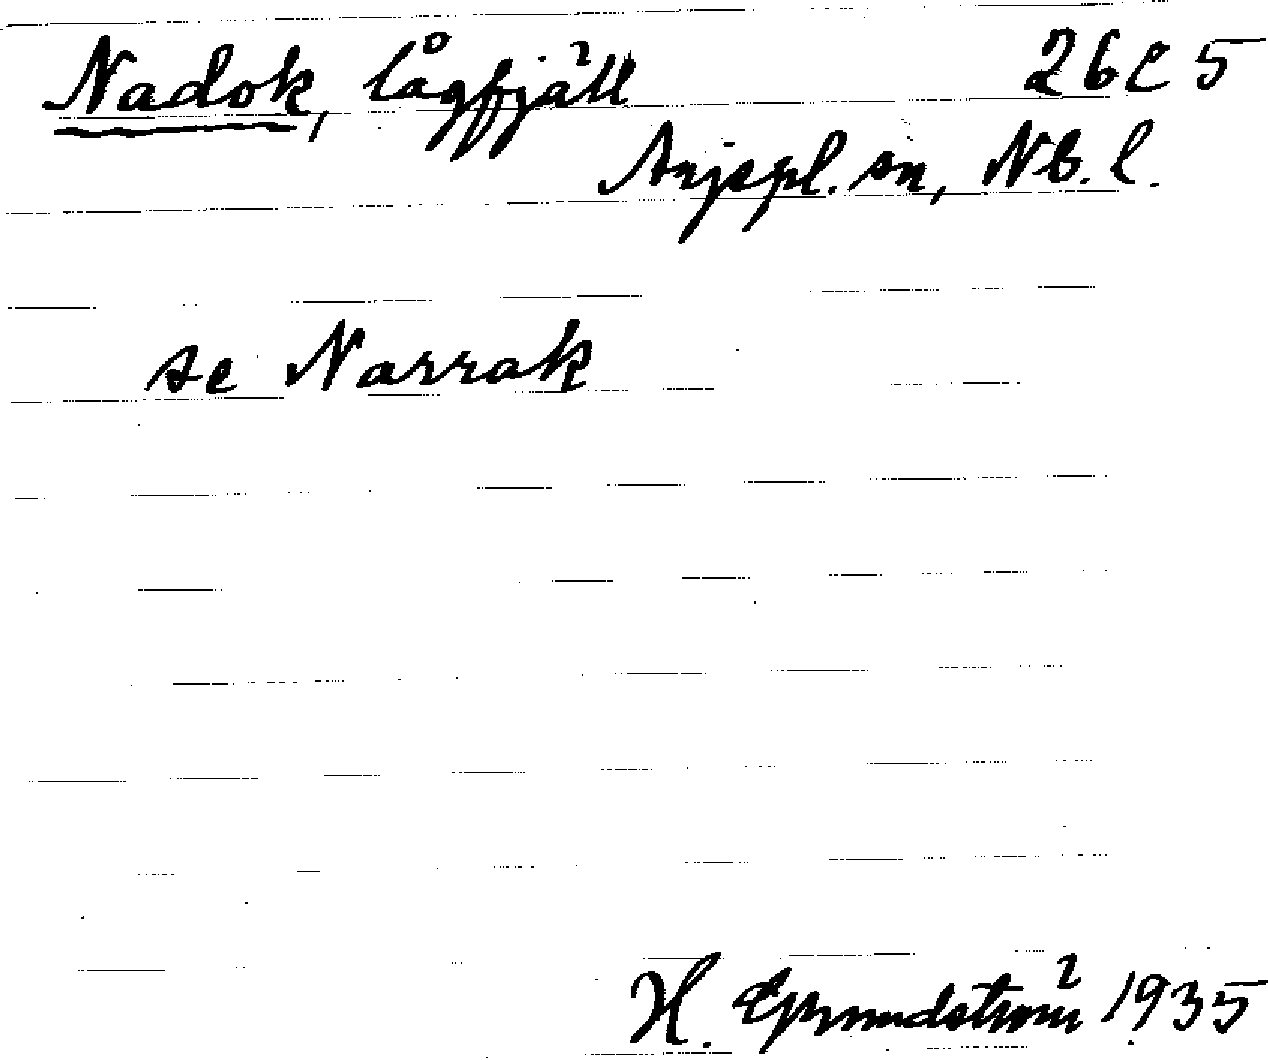 Nadok, lågfjäll 26C5
Arjepl. sn, Nb. l.
se Narrak
H. Grundström 1935